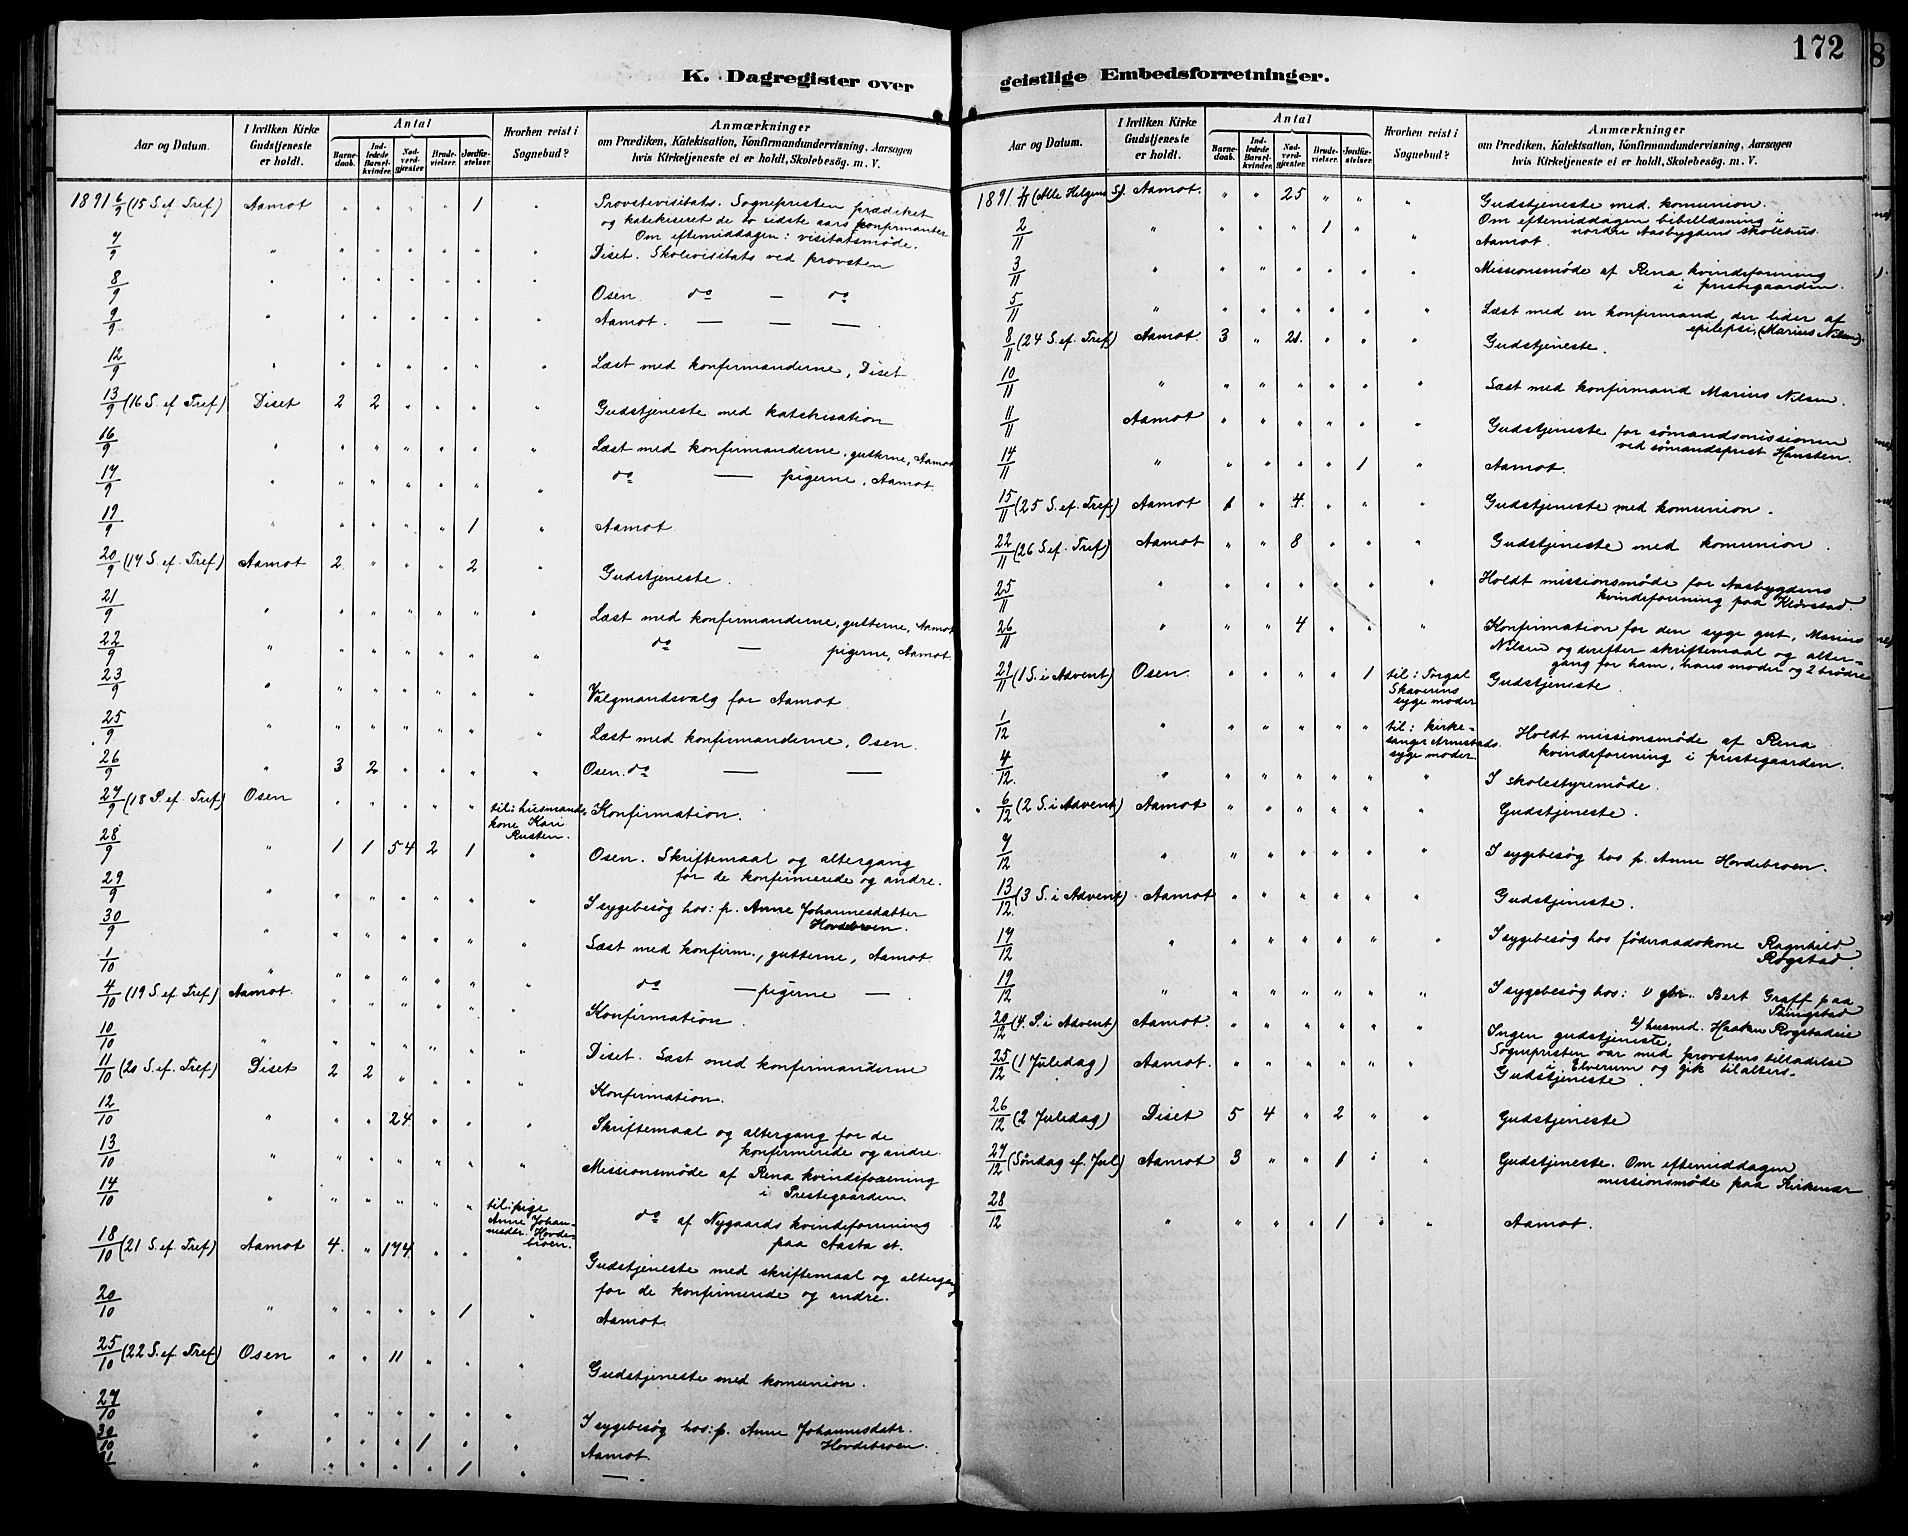 K. Dagregister over
Aar og Datum.
I hvilken Kirke Gudstjeneste er holdt.
Antal
Barnedaab.
Indledede Barselkvinder.
Nadverdgjæster.
Brudevielser.
Jordfæstelser.
Hvorhen reist i Sognebud?
Anmærkninger
om Prædiken, Katekisation, Konfirmandundervisning, Aarsagen
hvis Kirketjeneste ei er holdt, Skolebesög. m. V.
1891 6/9 (15 S. ef. Tref) Aamot " " " " 1 " Provstevisitats. Sognepresten prædiket
og katekiseret de to sidste aars konfirmanter
Om eftemiddagen: visitatsmøde.
7/9 " " " " " " " Diset. Skolevisitats ved provsten
8/9 " " " " " " " Osen do — do
9/9 " " " " " " " Aamot. — — —
12/9 " " " " " " " Læst med konfirmanderne, Diset
13/9 (16 S. ef. Tref) Diset 2 2 " " " " Gudstjeneste med katekisation
16/9 " " " " " " " Læst med konfirmanderne, gutterne, Aamot
17/9 " " " " " " " do — pigerne, Aamot.
19/9 " " " " " 1 " Aamot
20/9 (17 S. ef. Tref) Aamot 2 " " " 2 " Gudstjeneste.
21/9 " " " " " " " Læst med konfirmanderne, gutterne, Aamot
22/9 " " " " " " " do — pigerne, Aamot
23/9 " " " " " " " Valgmandsvalg for Aamot
25/9 " " " " " " " Læst med konfirmanderne, Osen.
26/9 " 3 2 " " " " Osen. do — —
27/9 (18 S. ef. Tref) Osen " " " " " til: husmands-
kone Kari
Rusten. Konfirmation.
28/9 " 1 1 54 2 1 " Osen. Skriftemaal og altergang
for de konfirmerede og andre.
29/9 " " " " " " " I sygebesøg hos: p. Anne Johannesdatter
Hovdebroen.
30/9 " " " " " " " Læst med konfirm., gutterne, Aamot.
1/10 " " " " " " " do — pigerne —
4/10 (19 S. ef. Tref) Aamot. " " " " " " Konfirmation.
10/10 " " " " " " " Diset. Læst med konfirmanderne
11/10 (20 S. ef. Tref) Diset 2 2 " " " " Konfirmation.
12/10 " " " 24 " " " Skriftemaal og altergang for de
konfirmerede og andre.
13/10 " " " " " " " Missionsmøde af Rena kvindeforening
i Prestegaarden.
14/10 " " " " " " til: pige
Anne Johan-
nesdr. Hovde-
broen. do af Nygaards kvindeforening
paa Aasta st.
18/10 (21 S. ef. Tref) Aamot 4 " 174 " " " Gudstjeneste med skriftemaal og altergang
for de konfirmerede og andre.
20/10 " " " " " 1 " Aamot.
25/10 (22 S. ef. Tref) Osen " " 11 " " " Gudstjeneste med komunion.
27/10 " " " " " " " I sygebesøg hos: p. Anne Johannesdatr.
Hovdebroen.
30/10 " " " " 1 " " Aamot.
" " " " " 1 " —
geistlige Embedsforretninger.
172
Aar og Datum.
I hvilken Kirke Gudstjeneste er holdt.
Antal
Barnedaab.
Indledede Barselkvinder.
Nadverdgjæster.
Brudevielser.
Jordfæstelser.
Hvorhen reist i Sognebud?
Anmærkninger
om Prædiken, Katekisation, Konfirmandundervisning, Aarsagen
hvis Kirketjeneste ei er holdt, Skolebesög. m. V.
1891. 1/11 (Alle Helgens S). Aamot. " " 25 " " " Gudstjeneste med komunion.
Om eftemiddagen bibellæsning i
nordre Aasbygdens skolehus.
2/11 " " " " 1 " " Aamot.
3/11 " " " " " " " Missionsmøde af Rena kvindeforening
i prestegaarden.
5/11 " " " " " " " Læst med en konfirmand, der lider af
epilepsi, (Marius Nilsen).
8/11 (24 S. ef. Tref) Aamot. 3 " 21. " " " Gudstjeneste.
10/11 " " " " " " " Læst med konfirmand Marius Nilsen.
11/11 Aamot " " " " " " Gudstjeneste for sømandsmissionen
ved sømandsprest Hansten.
14/11 " " " " " 1 " Aamot.
15/11 (25 S. ef. Tref) Aamot 1 " 4. " " " Gudstjeneste med komunion.
22/11 (26 S. ef. Tref) Aamot " " 8 " " " Gudstjeneste med komunion.
25/11 " " " " " " " Holdt missionsmøde for Aasbygdens
kvindeforening paa Kløvstad.
26/11 " " " 4 " " " Konfirmation for den syge gut, Marius
Nilsen og derefter skriftemaal og alter-
gang for ham, hans moder og 2 brødre
29/11 (1 S. i Advent) Osen. " " " " 1 til: Torgal
Skaverens
syge moder Gudstjeneste.
1/12 " " " " " " til: kirke-
sanger Arnestads
syge moder. Holdt missionsmøde af Rena
kvindeforening i prestegaarden.
4/12. " " " " " " " I skolestyremøde.
6/12 (2 S. i Advent) Aamot " " " " " " Gudstjeneste.
9/12 " " " " " " " I sygebesøg hos p. Anne Hovdebroen.
13/12. (3 S. i Advent) Aamot " " " " " " Gudstjeneste.
17/12 " " " " " " " I sygebesøg hos føderaadskone Ragnhild
Rogstad.
19/12 " " " " " " " I sygebesøg hos: 1) gbr. Bert Graff paa
Tangstad
2) husmd. Haaken Rogstadeie
20/12 (4. S. i Advent) Aamot. " " " " " " Ingen gudstjeneste,
Sognepresten var med provstens tilladelse
i Elverum og gik tilalters.
25/12 (1 Juledag) Aamot. " " " " " " Gudstjeneste.
26/12 (2 Juledag) Diset 5 4 " 2 " " Gudstjeneste
27/12 (Søndag ef. Jul) Aamot 3 " " 1 " " Gudstjeneste. Om eftemiddagen
missionsmøde paa Kirkenær
28/12 " " " " 1 " " Aamot.